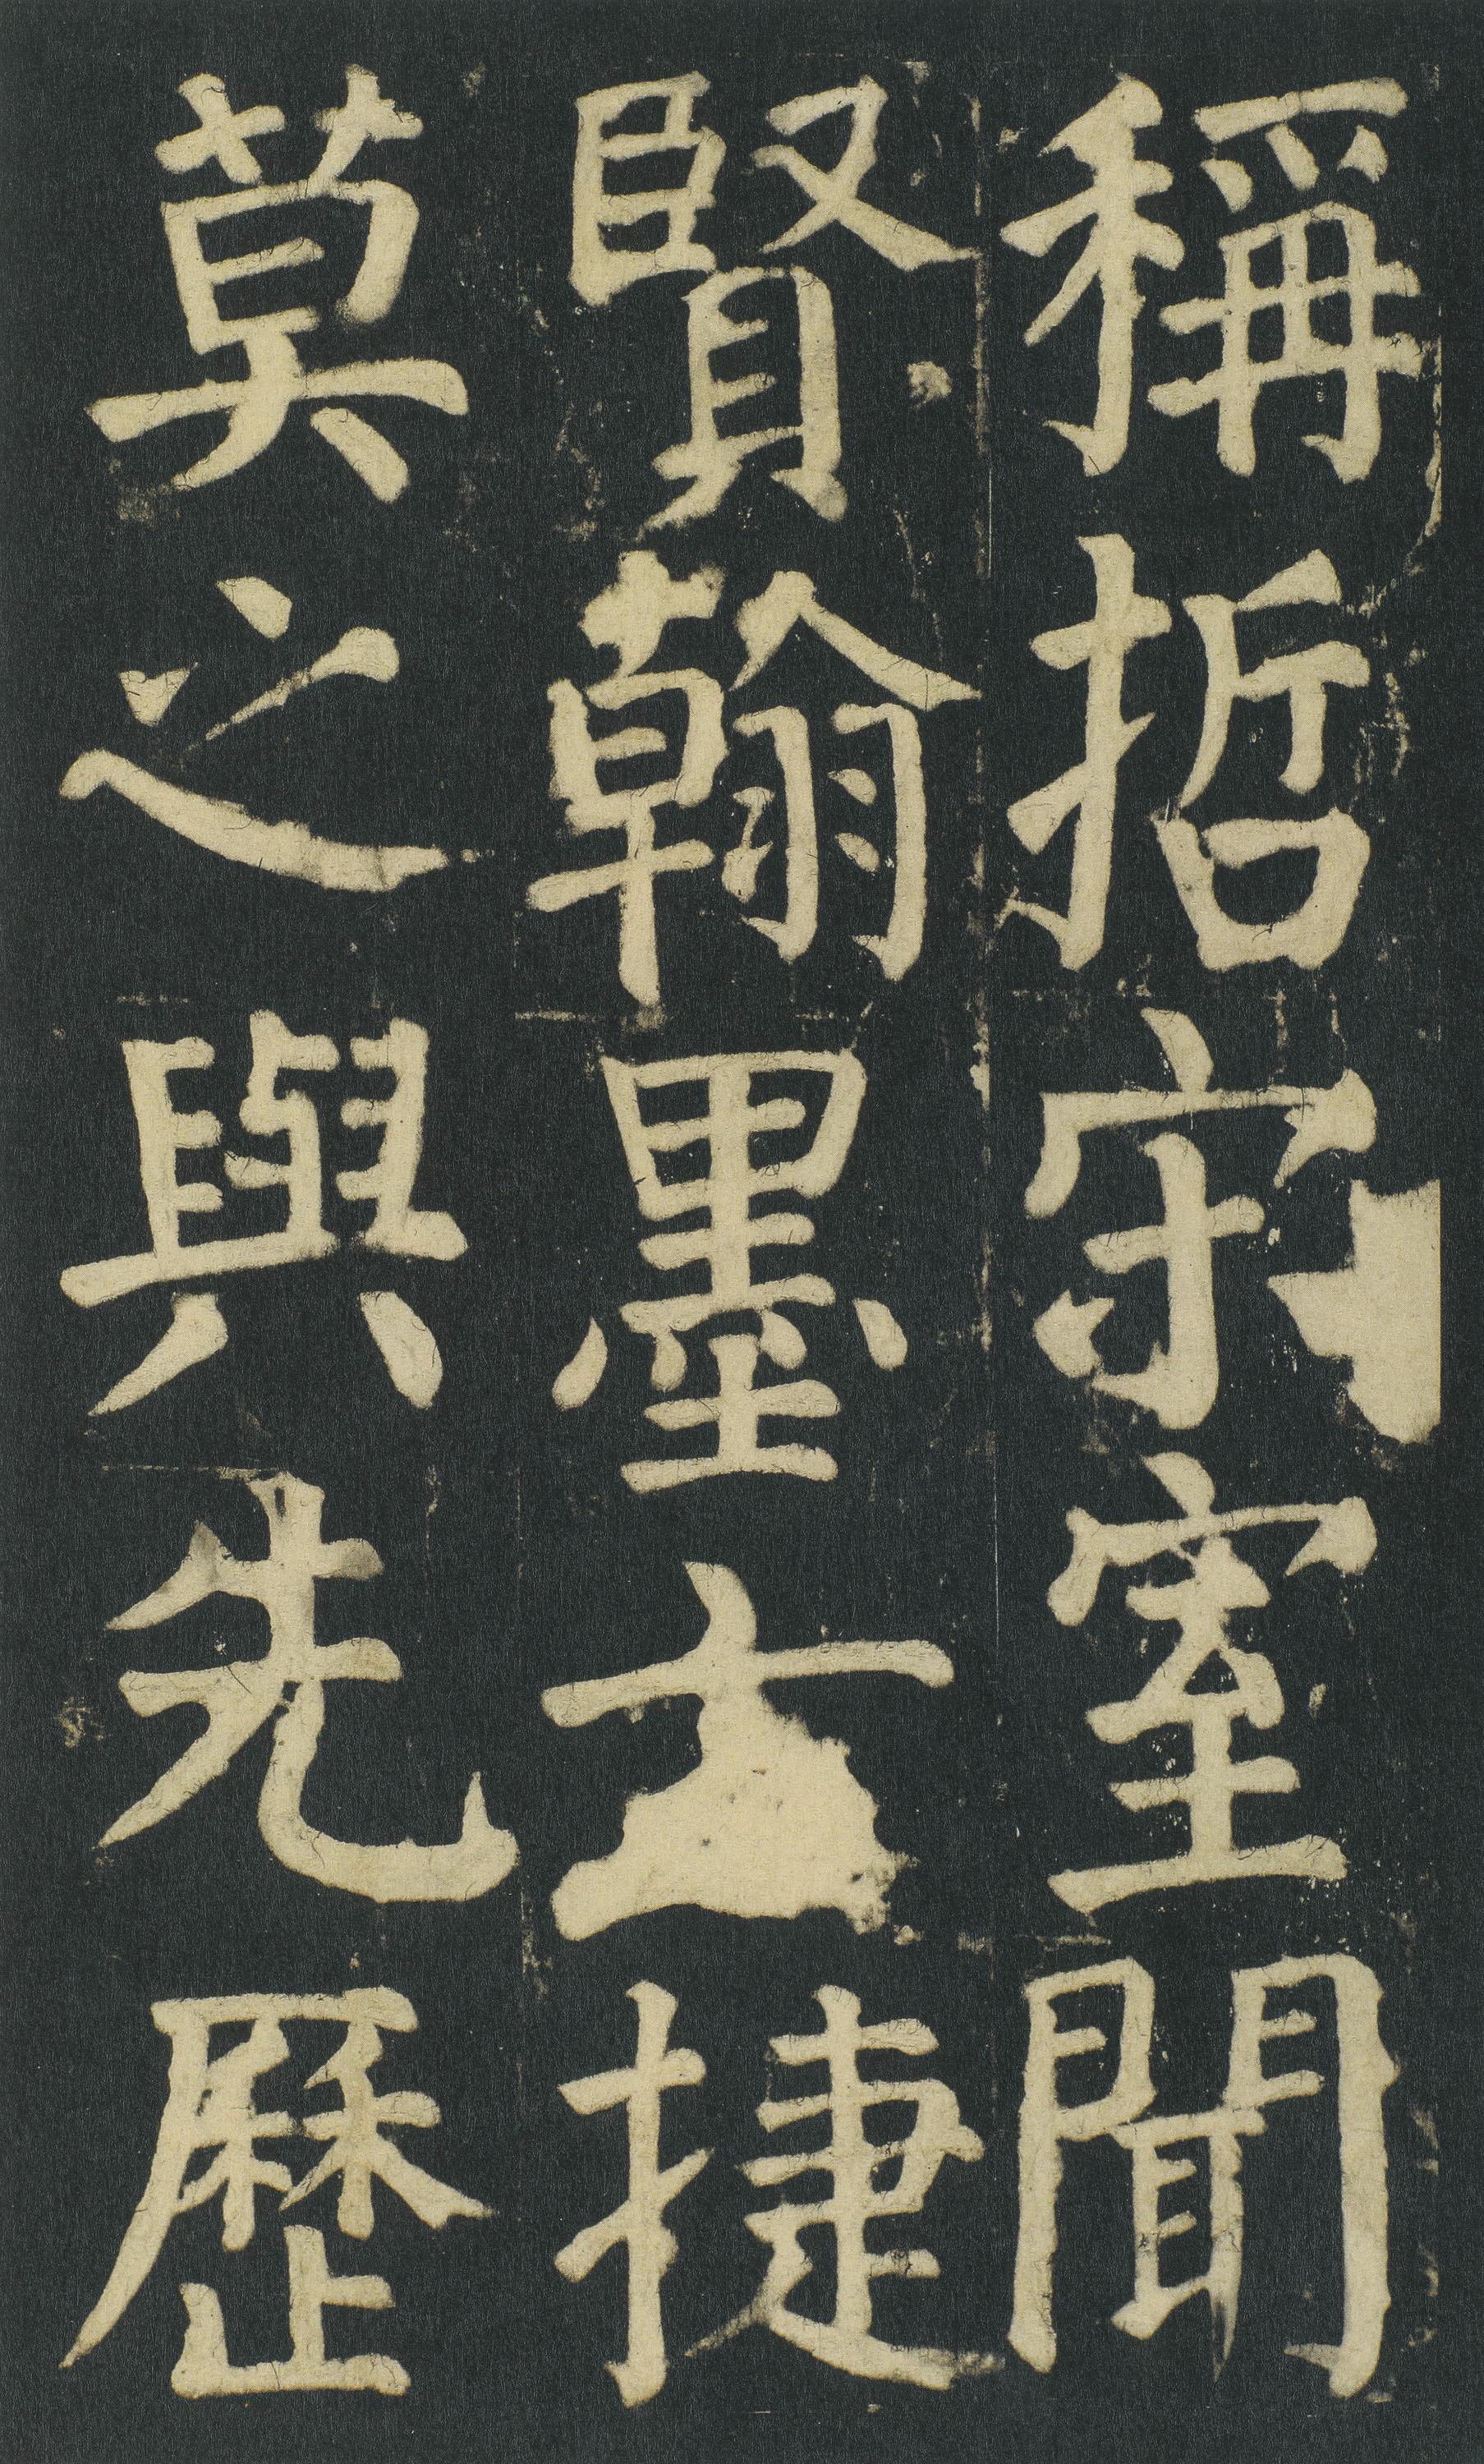 稱哲宗室聞
賢翰墨捷
莫之與先歷